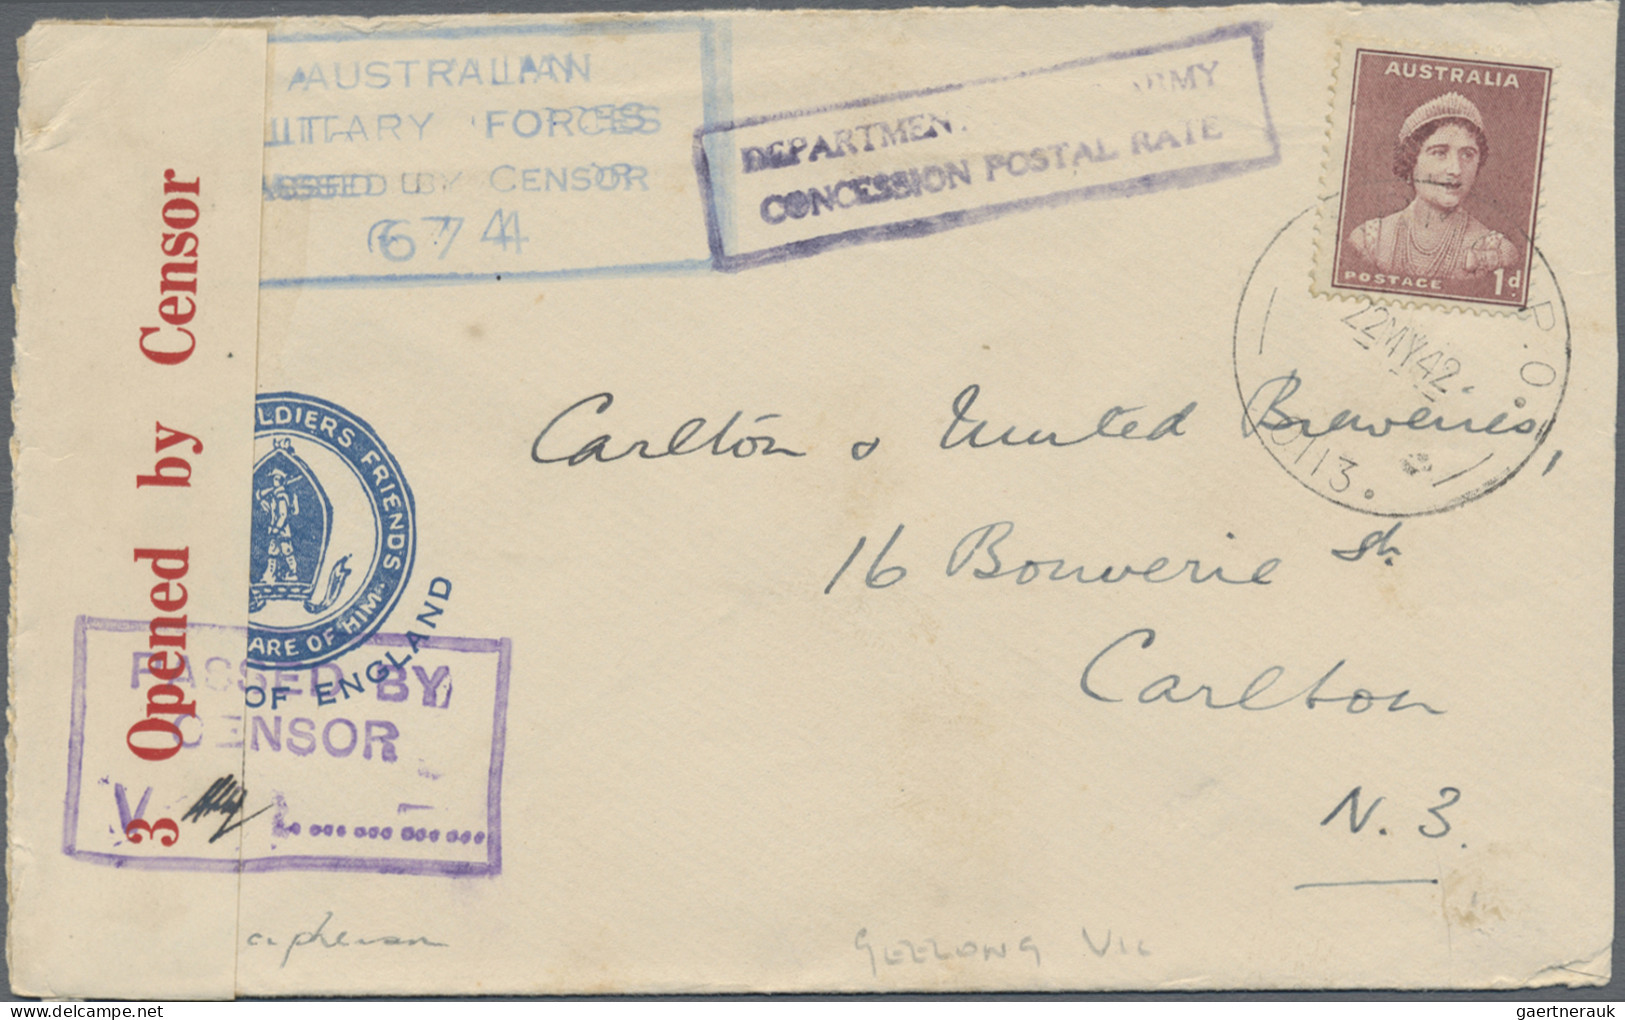 AUSTRALIAN
FORCES
CENSOR
674
DEPARTMEN
RMY
CONCESSION POSTAL RATE
AUSTRALIA
POSTAGE 1d
P.O.
22MY42
0113.
3 Opened by Censor
LDIERS FRIENDS
ARE OF HIM
OF ENGLAND
PASSED BY
CENSOR
V
Carlton & United Breweries,
16 Bouverie St.
Carlton
N. 3.
GEELONG VIC
gaertnerauk